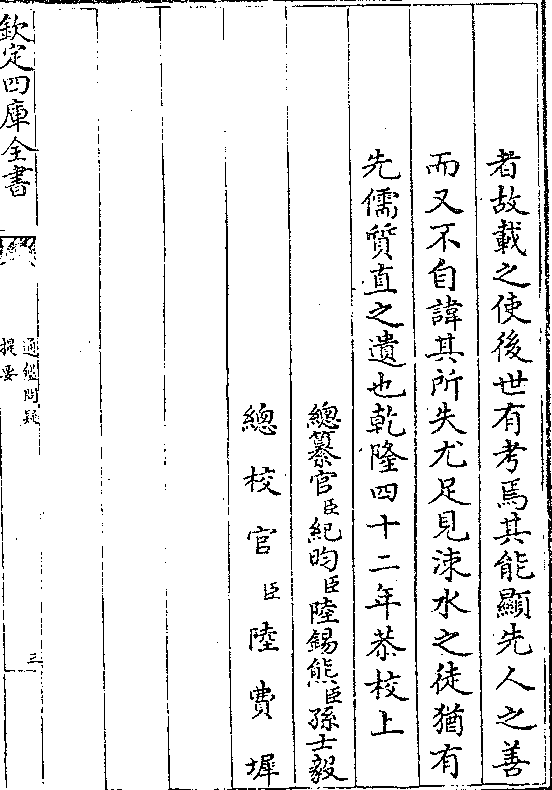 者故載之使後世有考焉其能顯先人之善
而又不自諱其所失尤足見涑水之徒猶有
先儒質直之遺也乾隆四十二年恭校上
總纂官臣紀昀臣陸錫熊臣孫士毅
總校官臣陸費墀
欽定四庫全書
通鑑問疑
提要
三